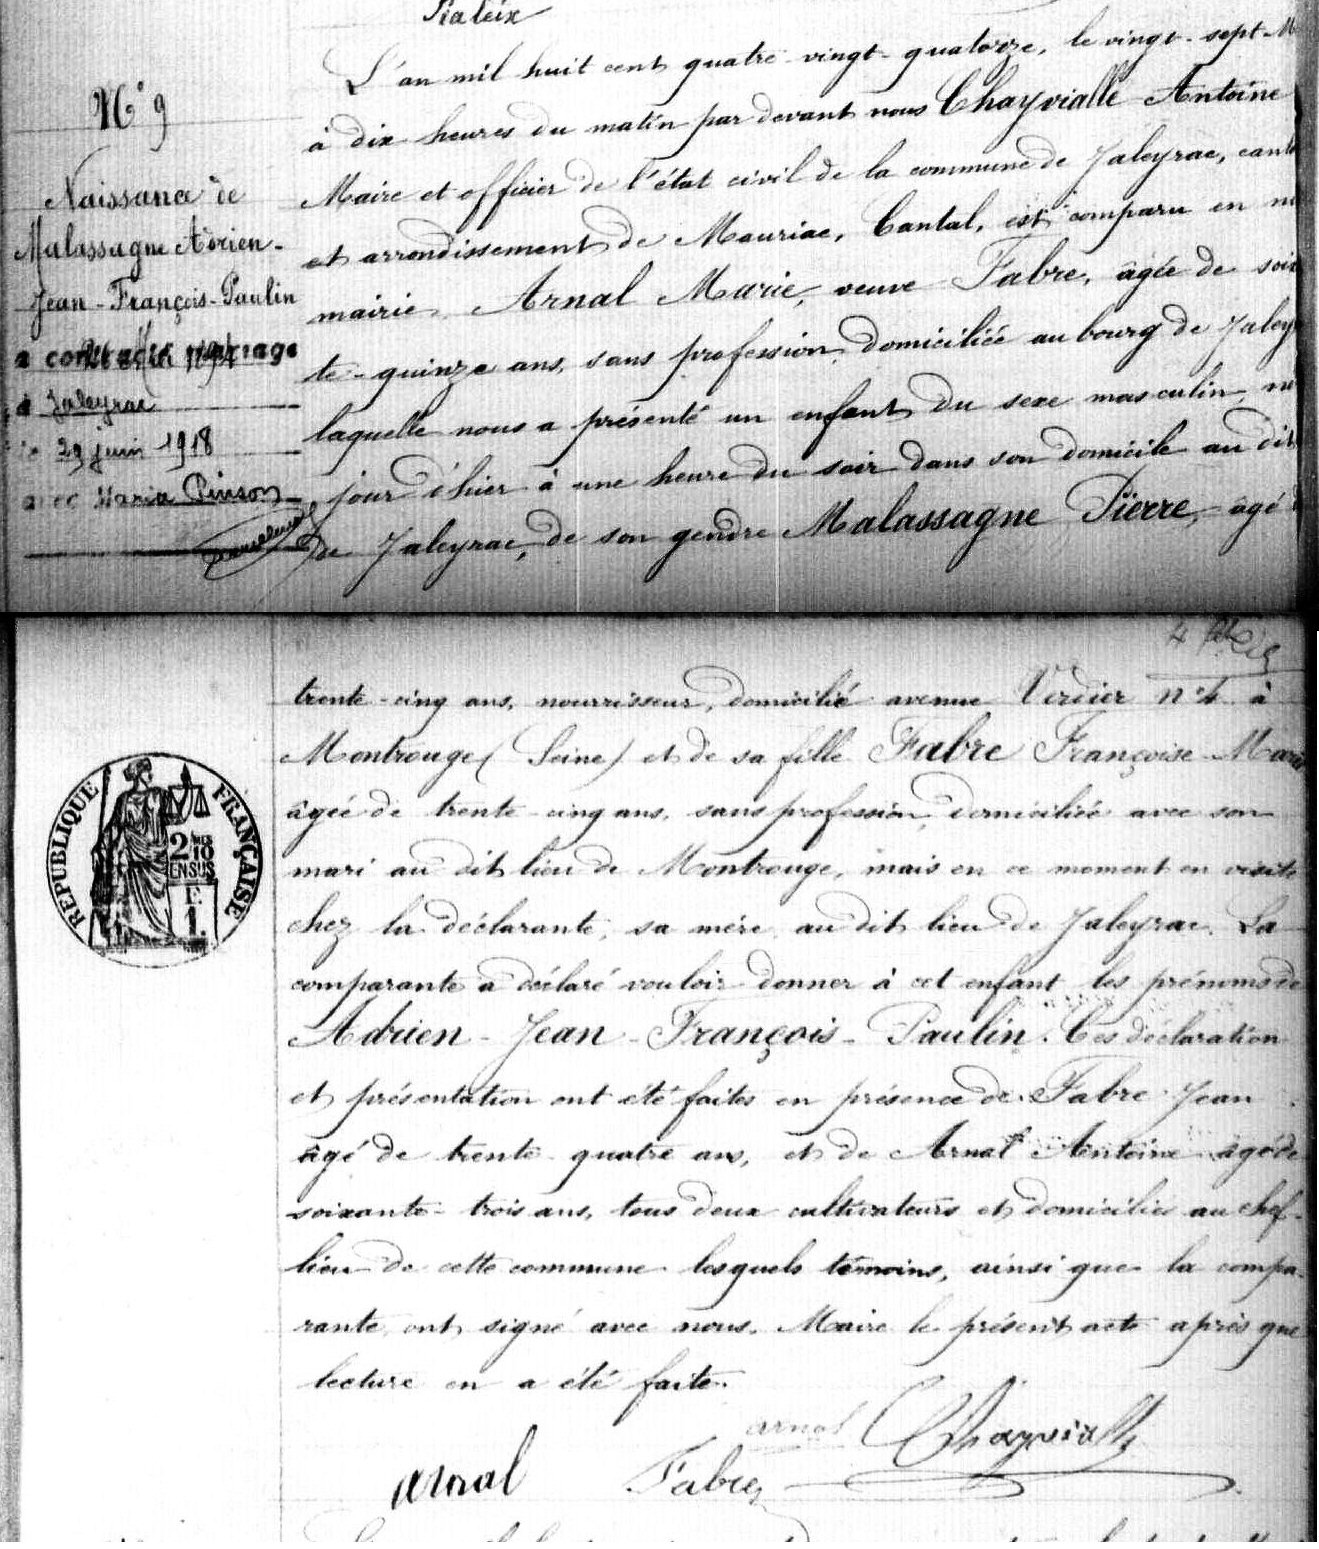 N° 9
Naissance de
Malassagne Adrien-
Jean-François-Paulin
a contracté mariage
à Jaleyrac
le 29 juin 1918
avec Maria Pinson
L'an mil huit cent quatre-vingt-quatorze, le vingt-sept M
à dix heures du matin par devant nous Chayvialle Antoine
Maire et officier de l'état civil de la commune de Jaleyrac, cant
et arrondissement de Mauriac, Cantal, est comparu en n
mairie Arnal Marie, veuve Fabre, âgée de soi
te-quinze ans, sans profession, domiciliée au bourg de Jaley
laquelle nous a présenté un enfant du sexe masculin, n
jour d'hier à une heure du soir dans son domicile au dit
de Jaleyrac, de son gendre Malassagne Pierre, âgé
trente-cinq ans, nourrisseur, domicilié avenue Verdier n° 4 à
Montrouge (Seine) et de sa fille Fabre Françoise Marie
âgée de trente-cinq ans, sans profession, domiciliée avec son
mari au dit lieu de Montrouge, mais en ce moment en visite
chez la déclarante, sa mère, au dit lieu de Jaleyrac. La
comparante a déclaré vouloir donner à cet enfant les prénoms de
Adrien-Jean-François-Paulin. Ces déclaration
et présentation ont été faites en présence de Fabre Jean
âgé de trente-quatre ans, et de Arnal Antoine âgé de
soixante-trois ans, tous deux cultivateurs et domiciliés au chef-
lieu de cette commune lesquels témoins, ainsi que la compa-
rante, ont signé avec nous, Maire le présent acte après que
lecture en a été faite.
arnal Chayvialle
arnal Fabre
RÉPUBLIQUE FRANÇAISE
2/10
EN SUS
F.
1.